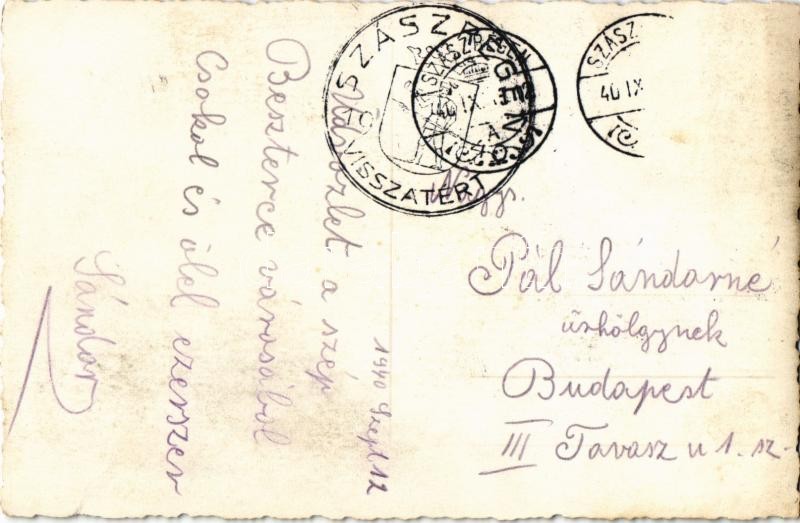 SZÁSZRÉGEN
VISSZATÉRT
SZÁSZRÉGEN
40 IX
A
SZÁSZ
40 IX
1940 Szept 12
Üdvözlet a szép
Beszterce városából
Csókol és ölel ezerszer
Sándor
Nagys.
Pál Sándorné
úrhölgynek
Budapest
III Tavasz u 1. sz.